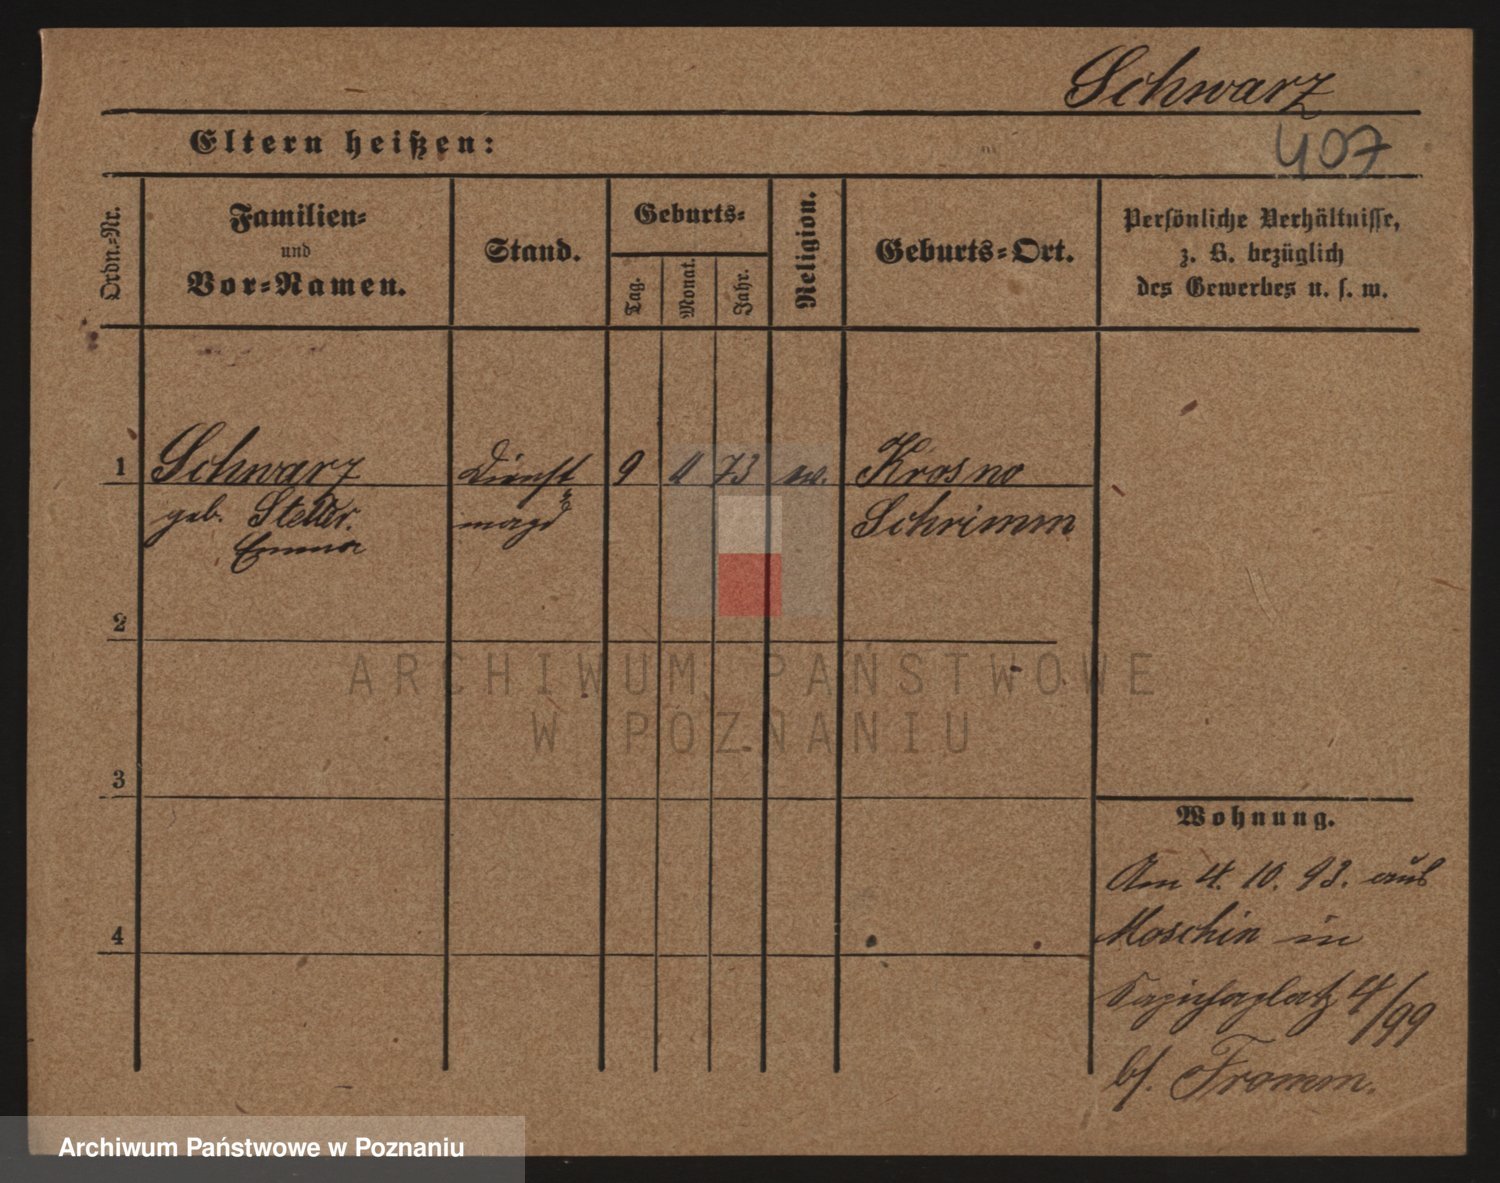 Schwarz
Eltern heißen:
407
Ordn.-Nr.
Familien-
und
Vor-Namen.
Stand.
Geburts-
Tag.
Monat.
Jahr.
Religion.
Geburts-Ort.
Persönliche Verhältnisse,
z. B. bezüglich
des Gewerbes u. s. w.
1 Schwarz Dienst 9 73 ev. Krosno
geb. magd Schrimm
Emma
2
3
4
Wohnung.
Am 4. 10. 93. aus
Moschin in
Sapiehaplatz 4/99
bf. Fromm.
ARCHIWUM PAŃSTWOWE
W POZNANIU
Archiwum Państwowe w Poznaniu